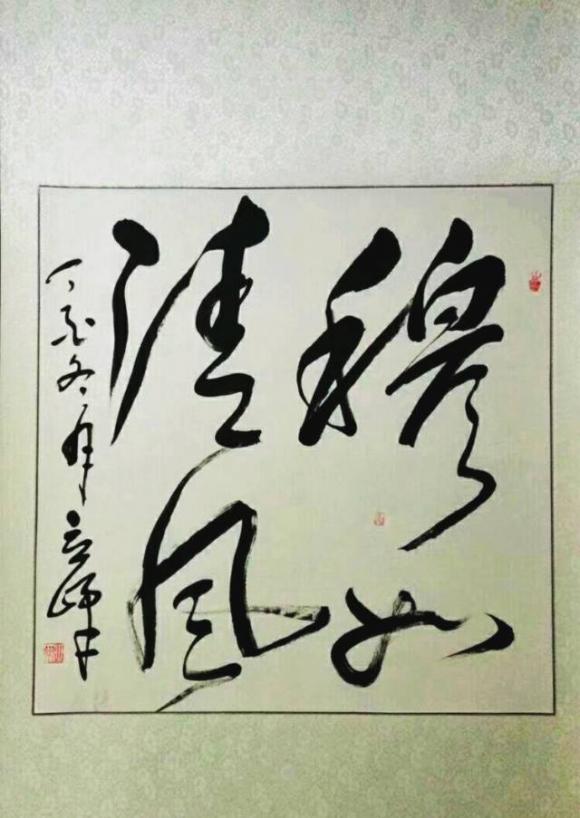 穆如
清風
丁亥冬月立峰